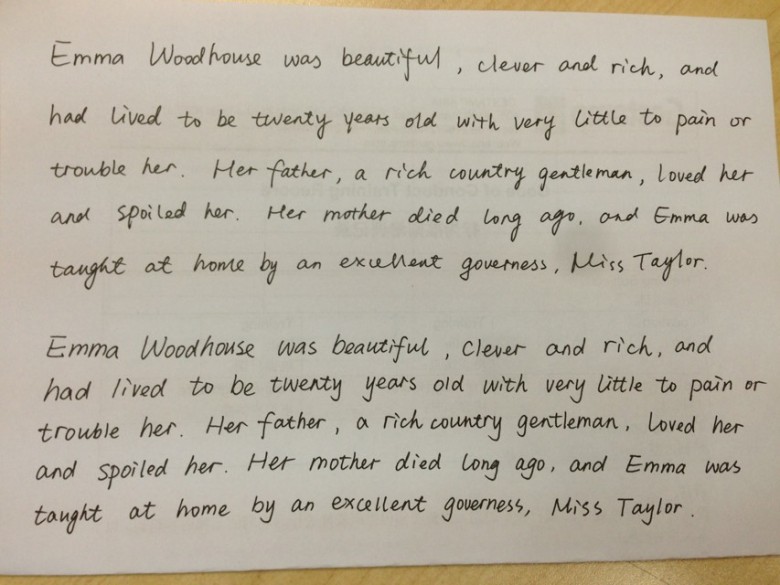 Emma Woodhouse was beautiful, clever and rich, and
had lived to be twenty years old with very little to pain or
trouble her. Her father, a rich country gentleman, loved her
and spoiled her. Her mother died long ago, and Emma was
taught at home by an excellent governess, Miss Taylor.
Emma Woodhouse was beautiful, clever and rich, and
had lived to be twenty years old with very little to pain or
trouble her. Her father, a rich country gentleman, loved her
and spoiled her. Her mother died long ago, and Emma was
taught at home by an excellent governess, Miss Taylor.